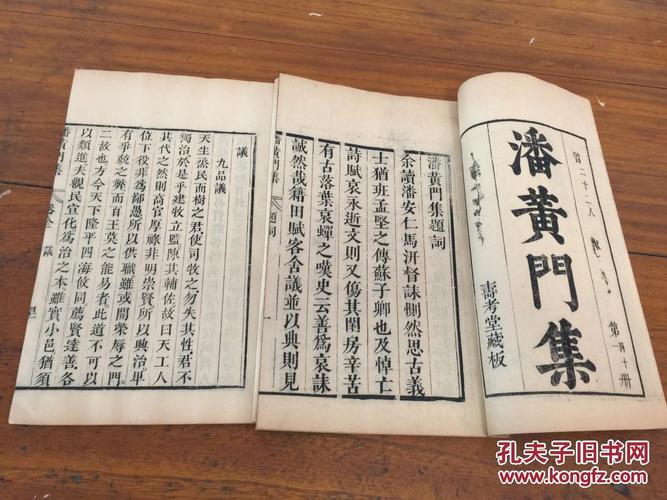 二十二人
潘黃門集
壽考堂藏板
潘黃門集題詞
余讀潘安仁馬汧督誄惻然思古義
士猶班孟堅之傳蘇子卿也及悼亡
詩賦哀永逝文則又傷其閨房辛苦
有古落葉哀蟬之嘆史云善為哀誄
誠然哉藉田賦客舍議並以典則見
潘黃門集 題詞 一
議
九品議
天生烝民而樹之君使司牧之勿失其性君不
獨治於是乎建牧立監陳其輔佐故曰天工人
其代之然則高官厚祿非明崇賢所以興治卑
位下役非為鄙愚所以供職雖或開榮辱之門
有爭兢之弊而百王莫之能易者此道不可以
二故也方今天下隆平四海攸同薦賢達善各
以類進夫觀民宣化為治之本雖實小邑猶須
潘黃門集 卷全 議
孔夫子旧书网
KONGFZ.COM